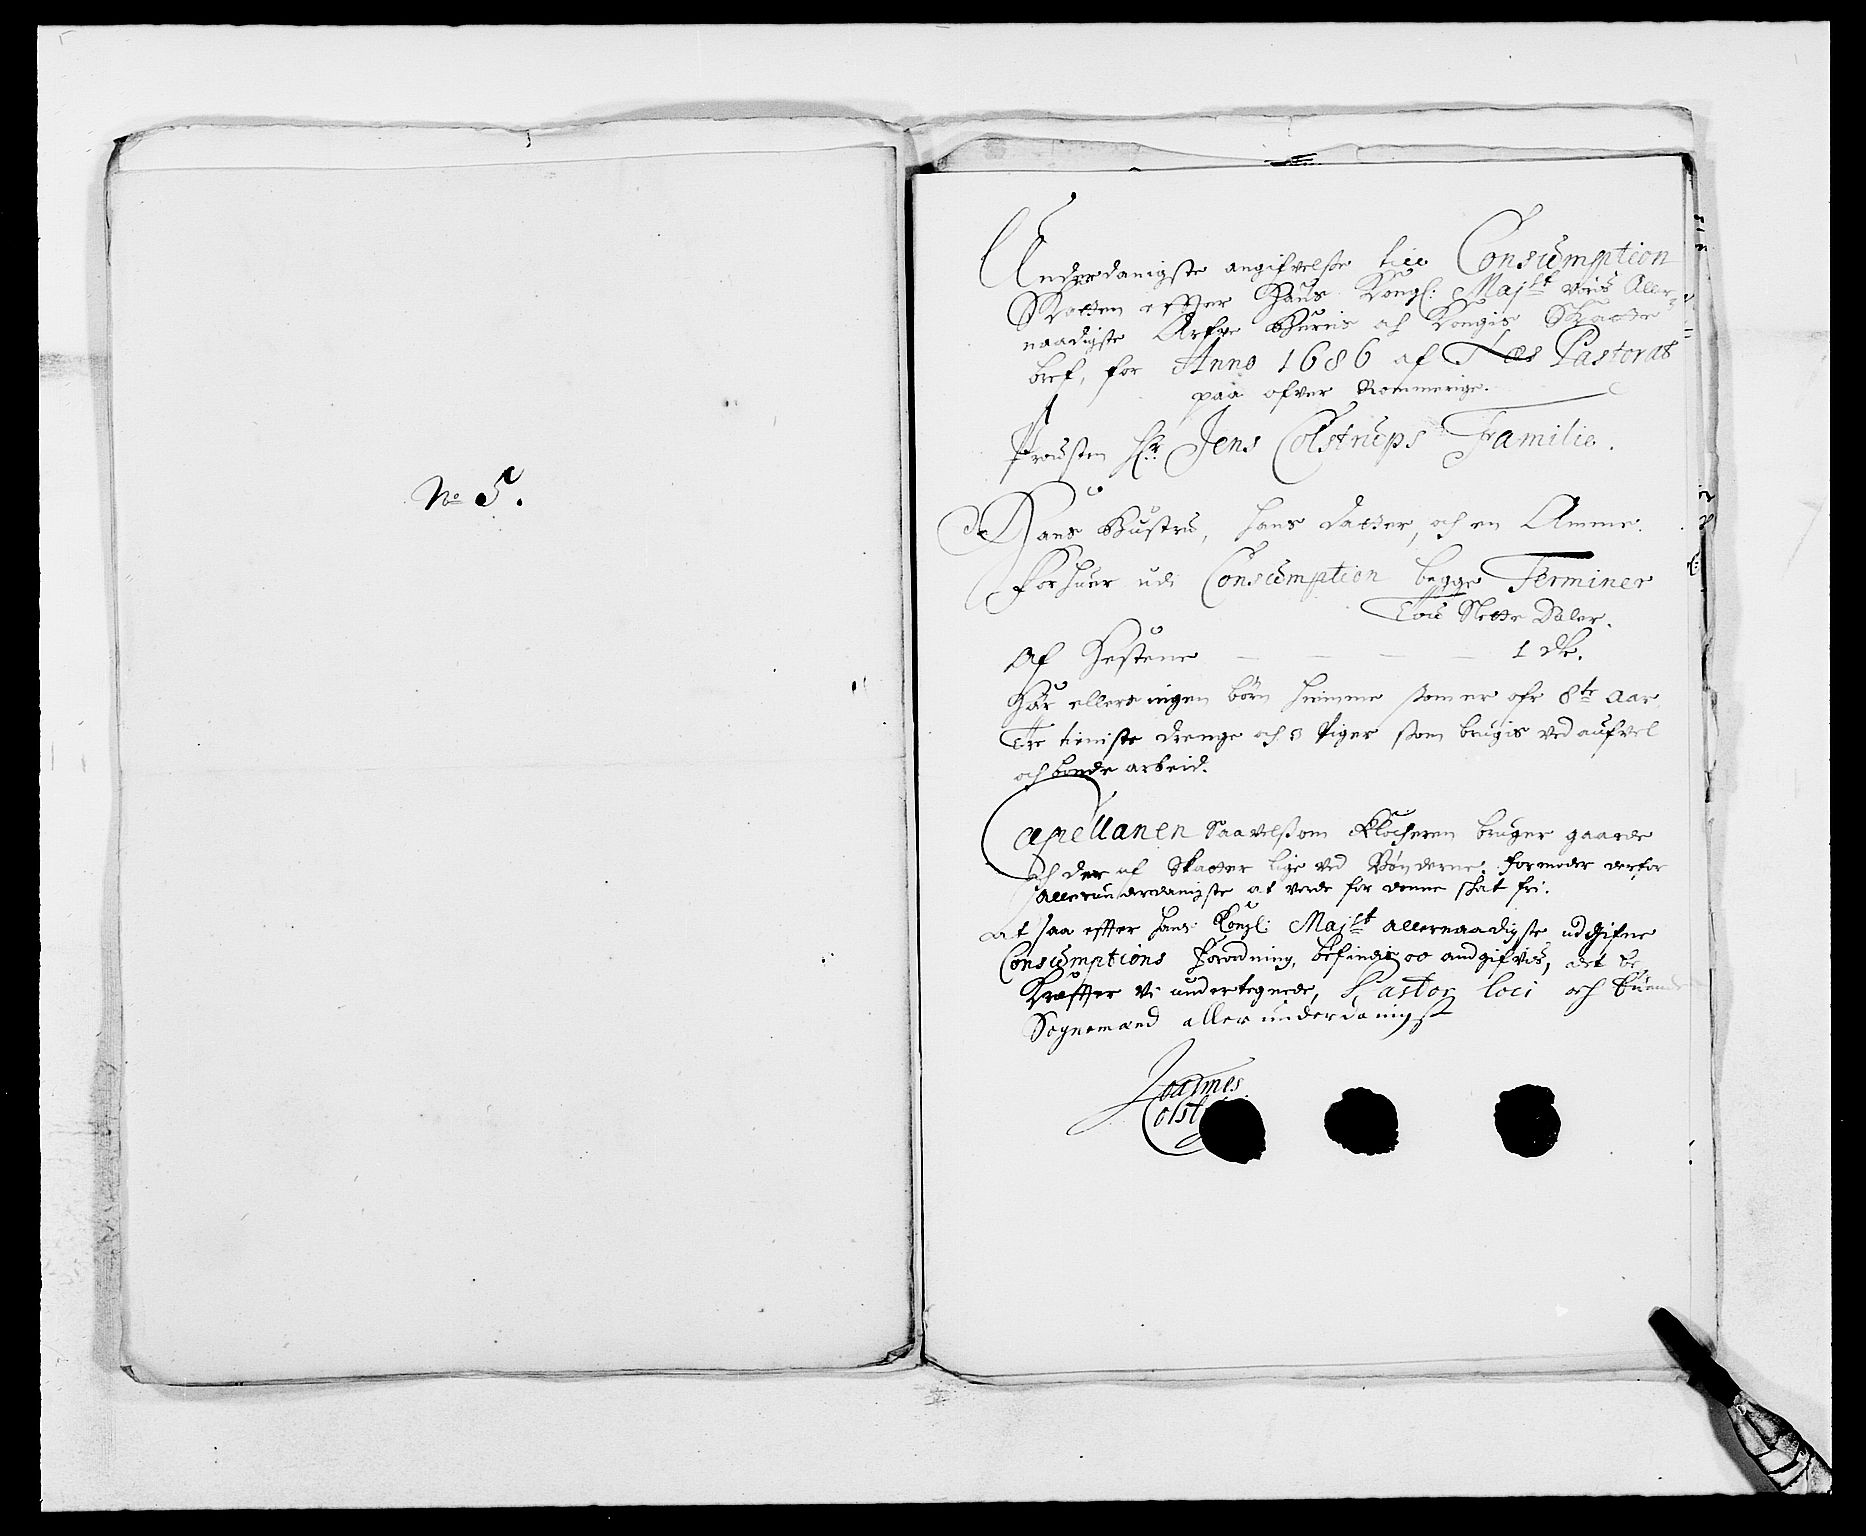 No 5.
Underdanigste angifvelsse till Consumption
Skatten effter Hans Kongl: Majst vores Aller-
naadigste Arfve Herris och Kongis Skatte
bref, for Anno 1686 af Næs Pastorat
paa ofver Rommerige.
Prousten Hr Jens Colstrups Familie.
Hans Hustru, hans datter, och en Amme.
Forhuer udi Consumption begge Terminer
Tou Slette Daler.
Af Hestene — — — — 1 dr.
Har ellers ingen börn hiemme som er ofr 8te aar
Tre tieniste drenge och 3 Piger som brugis ved aufvel
och bonde arbeid.
Capellanen Saavelsom Klocheren bruger gaarde
och der af Skatter lige ved Bönderne, formoder derfor
allerunderdanigste at være for denne skat fri.
At saa effter hans Kongl: Majst allernaadigste udgifne
Consumptions Forordning, befindis oc andgifvis, det be
Kreffter Vi undertegnede, Pastor loci och
Sognemænd allerunderdanigst
Joannes
Colst